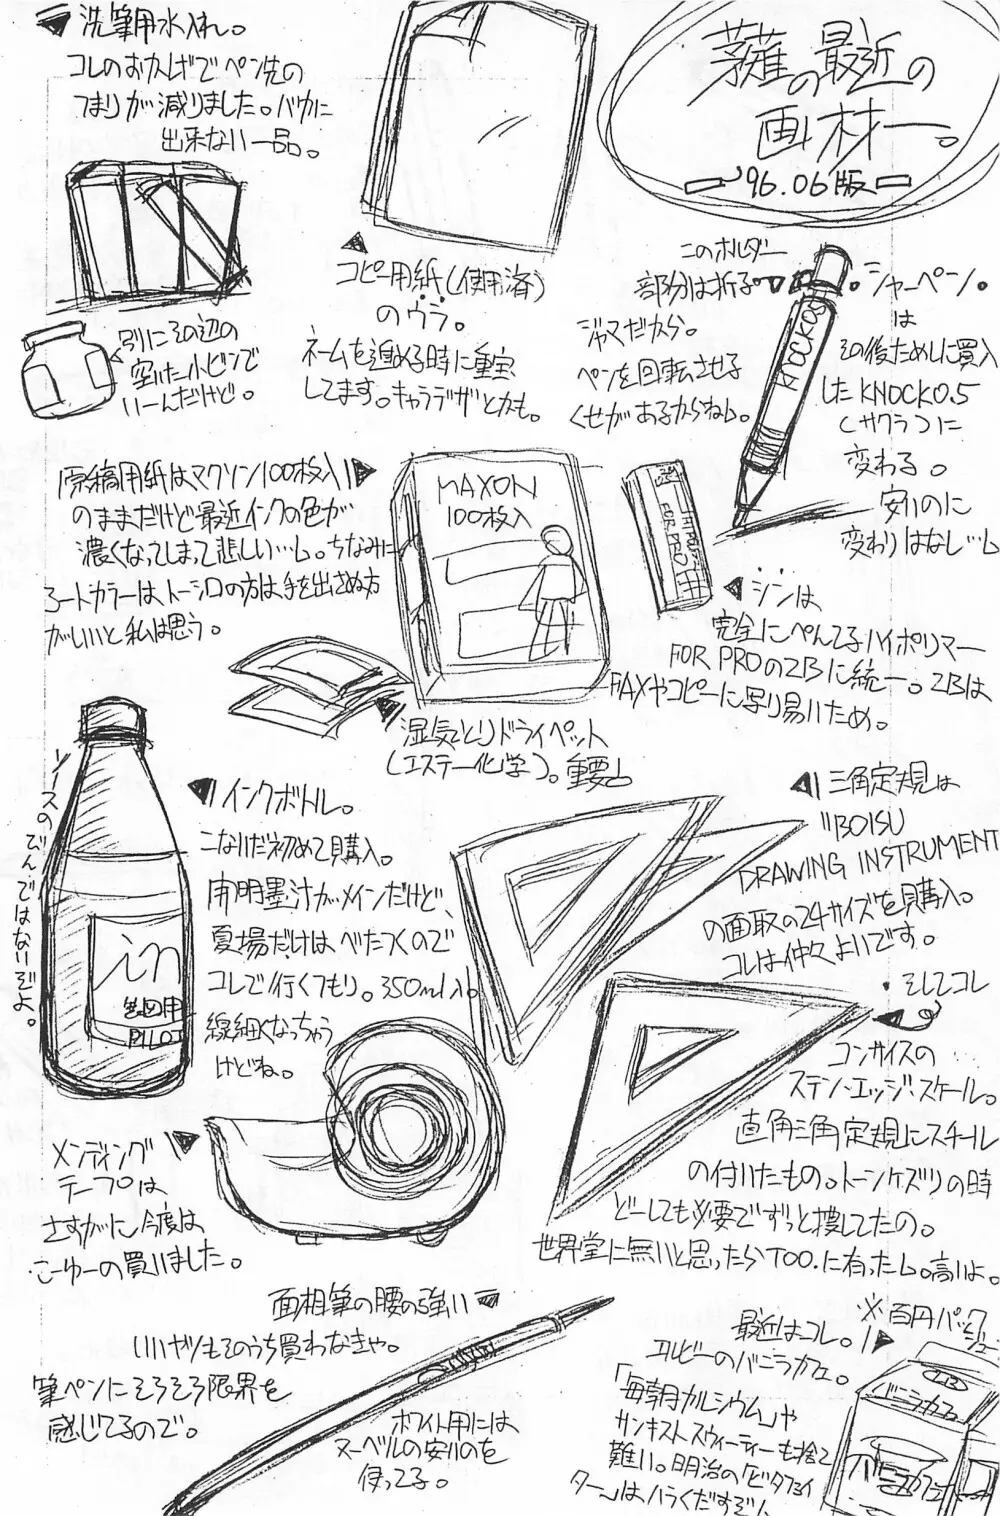 茅薙の最近の
画材一。
'96.06版
洗筆用水入れ。
コレのおかげでペン先の
つまりが減りました。バカに
出来ない一品。
別にその辺の
空いた小ビンで
いーんだけど。
コピー用紙(使用済)
のウラ。
ネームを進める時に重宝
してます。キャラデザとかも。
このホルダー
部分は折る。
ジャマだから。
ペンを回転させる
くせがあるからねム。
シャーペン。
は
その後ためしに買入
したKNOCK0.5
(サクラ)に
変わる。
安いのに
変わりはなし…ム
KNOCK0.5
原稿用紙はマクソン100枚入り
のままだけど最近インクの色が
濃くなってしまって悲しい…ム。ちなみに
ノートカラーは、トーシロの方は手を出さぬ方
がいいと私は思う。
MAXON
100枚入
FOR PRO
ジンは
完全にぺんてるハイポリマー
FOR PROの2Bに統一。2Bは
FAXやコピーに写り易いため。
湿気とりドライペット
(エステー化学)。重要ム
ソースのびんではないぞよ。
in
製図用
PILOT
インクボトル。
こないだ初めて購入。
開明墨汁がメインだけど、
夏場だけはべたつくので
コレで行くつもり。350ml入。
線細くなっちゃう
けどね。
三角定規は
"BOISU
DRAWING INSTRUMENT
の面取の24サイズを購入。
コレは仲々よいです。
・そしてコレ
コンサイスの
ステン・エッジ・スケール。
直角三角定規にスチール
の付いたもの。トーンケズリの時
どーしても必要でずっと捜してたの。
世界堂に無いと思ったらTOO.に有ったム。高いよ。
メンディング
テープは
さすがに今度は
こーゆーの買いました。
面相筆の腰の強い
いいヤツもそのうち買わなきゃ。
筆ペンにそろそろ限界を
感じてるので。
ホワイト用には
ヌーベルの安いのを
使ってる。
※百円パック
ジュー
最近はコレ。
エルビーのバニラカフェ。
「毎朝カルシウム」や
サンキストスウィーティーも捨て
難い。明治の「ビタファイ
ター」はハラくだすぞム
LB
バニラカフェ
バニラカフェ